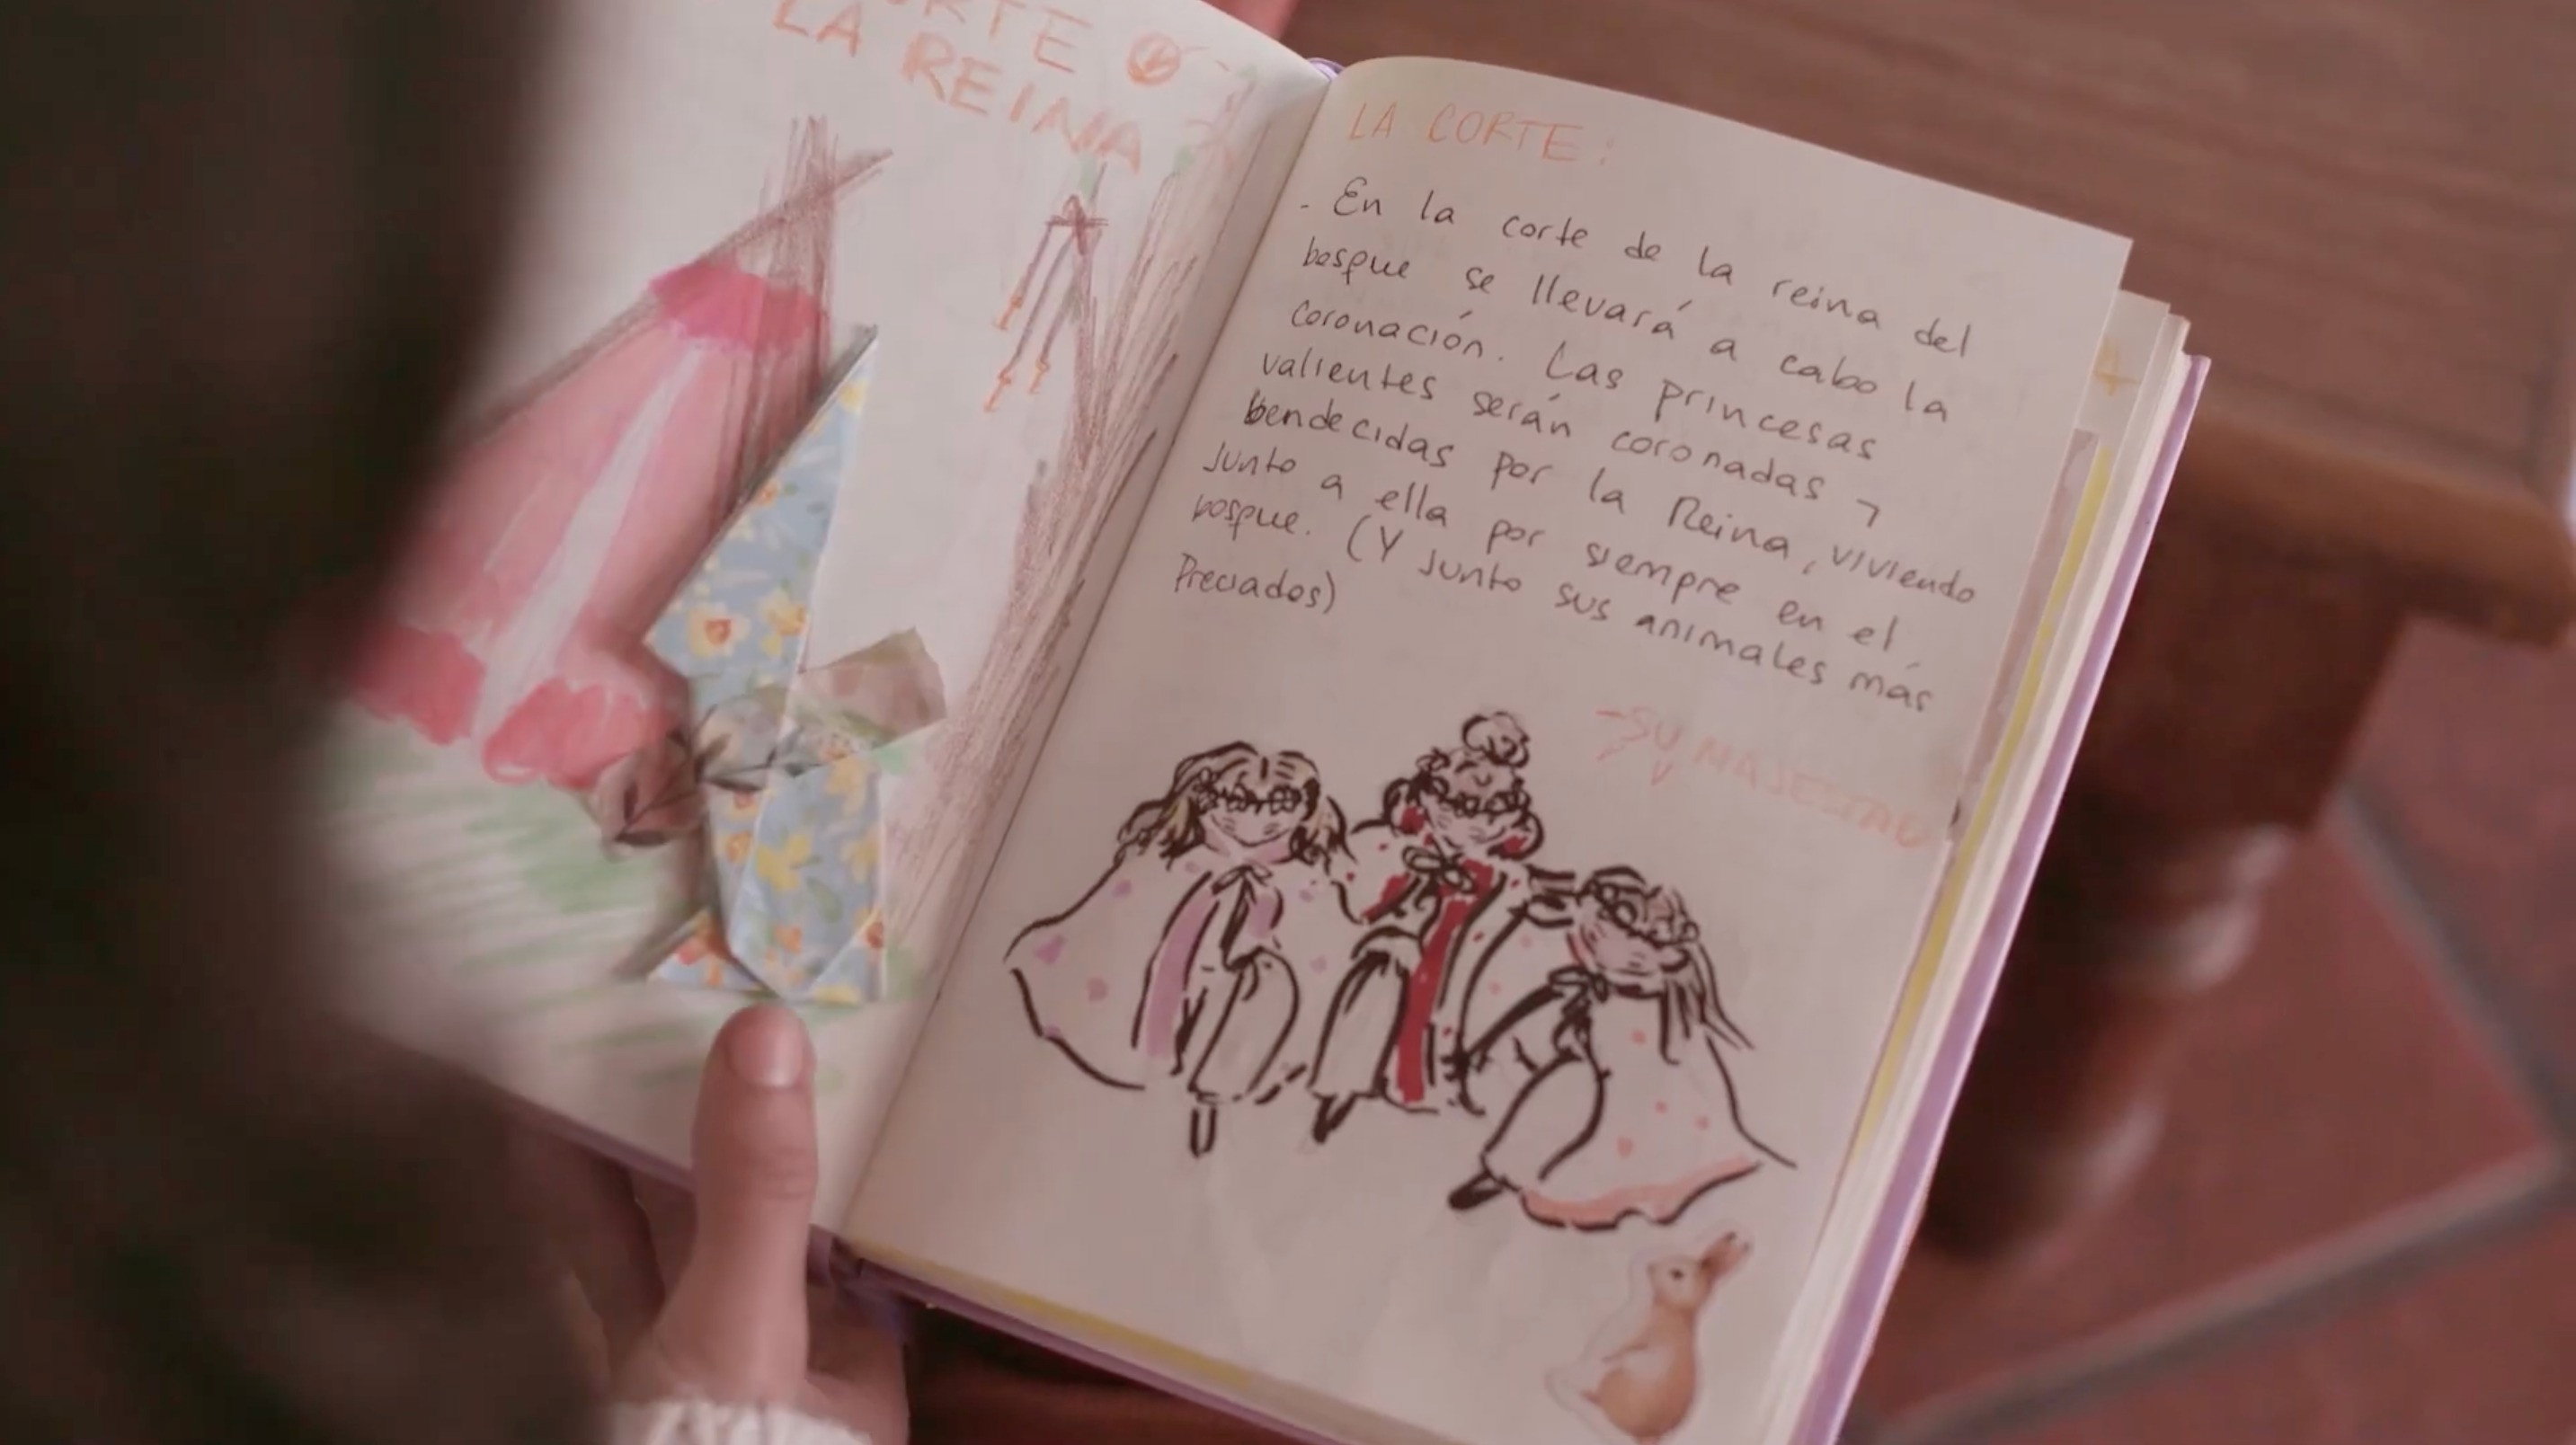 LA REINA
LA CORTE:
- En la corte de la reina del
bosque se llevará a cabo la
coronación. Las princesas
valientes serán coronadas y
bendecidas por la Reina, viviendo
junto a ella por siempre en el
bosque. (Y junto sus animales más
Preciados)
- SU MAJESTAD